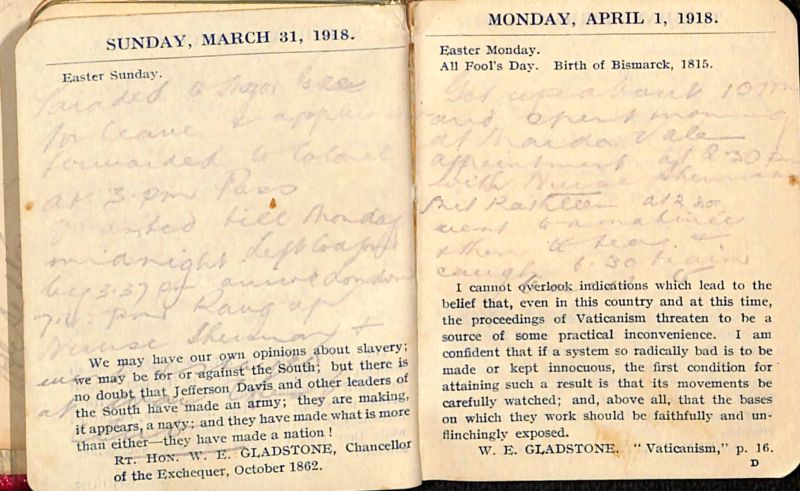 SUNDAY, MARCH 31, 1918.
Easter Sunday.
Paraded to Major Gee
for leave & application
forwarded to Colonel
at 3 pm Pass
granted till Monday
midnight Left
by 3.37 pm arrive London
7. pm Rang up
Nurse Sherman &
at
We may have our own opinions about slavery;
we may be for or against the South; but there is
no doubt that Jefferson Davis and other leaders of
the South have made an army; they are making,
it appears, a navy; and they have made what is more
than either—they have made a nation!
RT. HON. W. E. GLADSTONE, Chancellor
of the Exchequer, October 1862.
MONDAY, APRIL 1, 1918.
Easter Monday.
All Fool's Day. Birth of Bismarck, 1815.
Got up about 10
and spent morning
at Maida Vale
appointment at 2.30 pm
with Nurse Sherman
Met Kathleen at 2.30
went to a matinee
& then to tea &
caught 6.30 train
I cannot overlook indications which lead to the
belief that, even in this country and at this time,
the proceedings of Vaticanism threaten to be a
source of some practical inconvenience. I am
confident that if a system so radically bad is to be
made or kept innocuous, the first condition for
attaining such a result is that its movements be
carefully watched; and, above all, that the bases
on which they work should be faithfully and un-
flinchingly exposed.
W. E. GLADSTONE. "Vaticanism," p. 16.
D